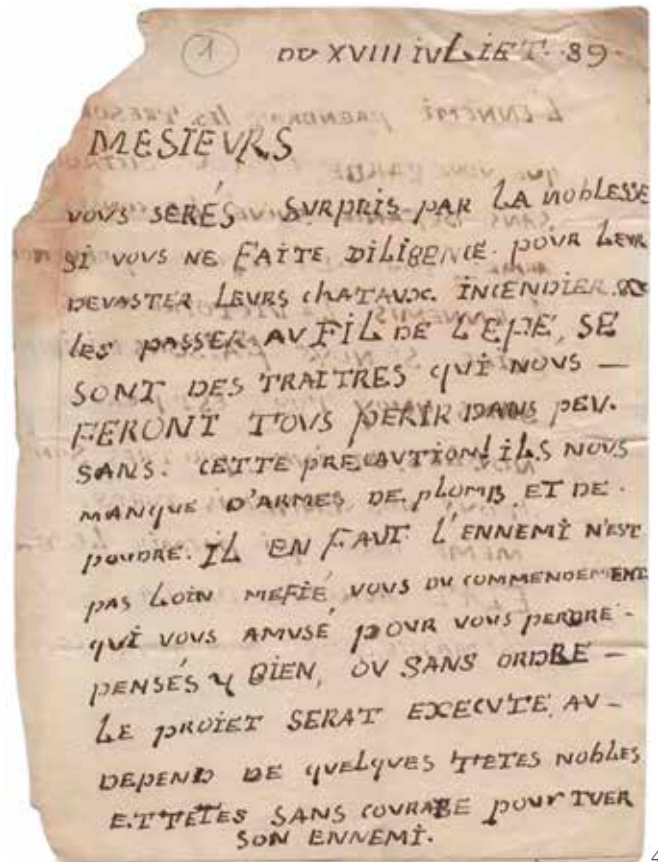 1
DU XVIII IVLIET. 89.
MESIEVRS
VOUS SERÉS SVRPRIS PAR LA NOBLESSE
SI VOUS NE FAITE DILIGENCE. POUR LEVR
DEVASTER LEVRS CHATAUX. INCENDIER. &
LES PASSER AV FIL DE L'EPÉ, SE
SONT DES TRAITRES QUI NOUS —
FERONT TOUS PERIR DANS PEV.
SANS. CETTE PRECAUTION! ILS NOUS
MANQUE D'ARMES DE PLOMB ET DE.
POUDRE. IL EN FAUT L'ENNEMI N'EST
PAS LOIN MEFIÉ, VOUS DU COMMENDEMENT
QVI VOUS AMUSE POUR VOUS PERDRE.
PENSÉS Y BIEN, OU SANS ORDRE —
LE PROIET SERAT EXECVTE, AV —
DEPEND DE QUELQUES TETES NOBLES
ET TÊTES SANS COURAGE POUR TUER
SON ENNEMI.